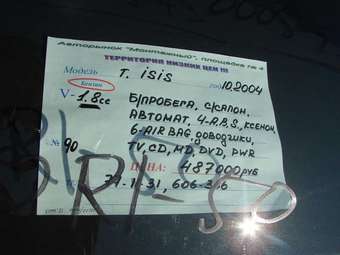 Авторынок "Монтажный", площадка № 4
ТЕРРИТОРИЯ НИЗКИХ ЦЕН !!!
Модель T. isis год 10.2004
Бензин
V- 1.8cc Б/ПРОБЕГА, С/САЛОН,
АВТОМАТ, 4-A.B.S., КСЕНОН,
6-AIR BAG, ДОВОДЧИКИ,
№ 90 TV, CD, MD, DVD, PWR
ЦЕНА: 487000 РУБ